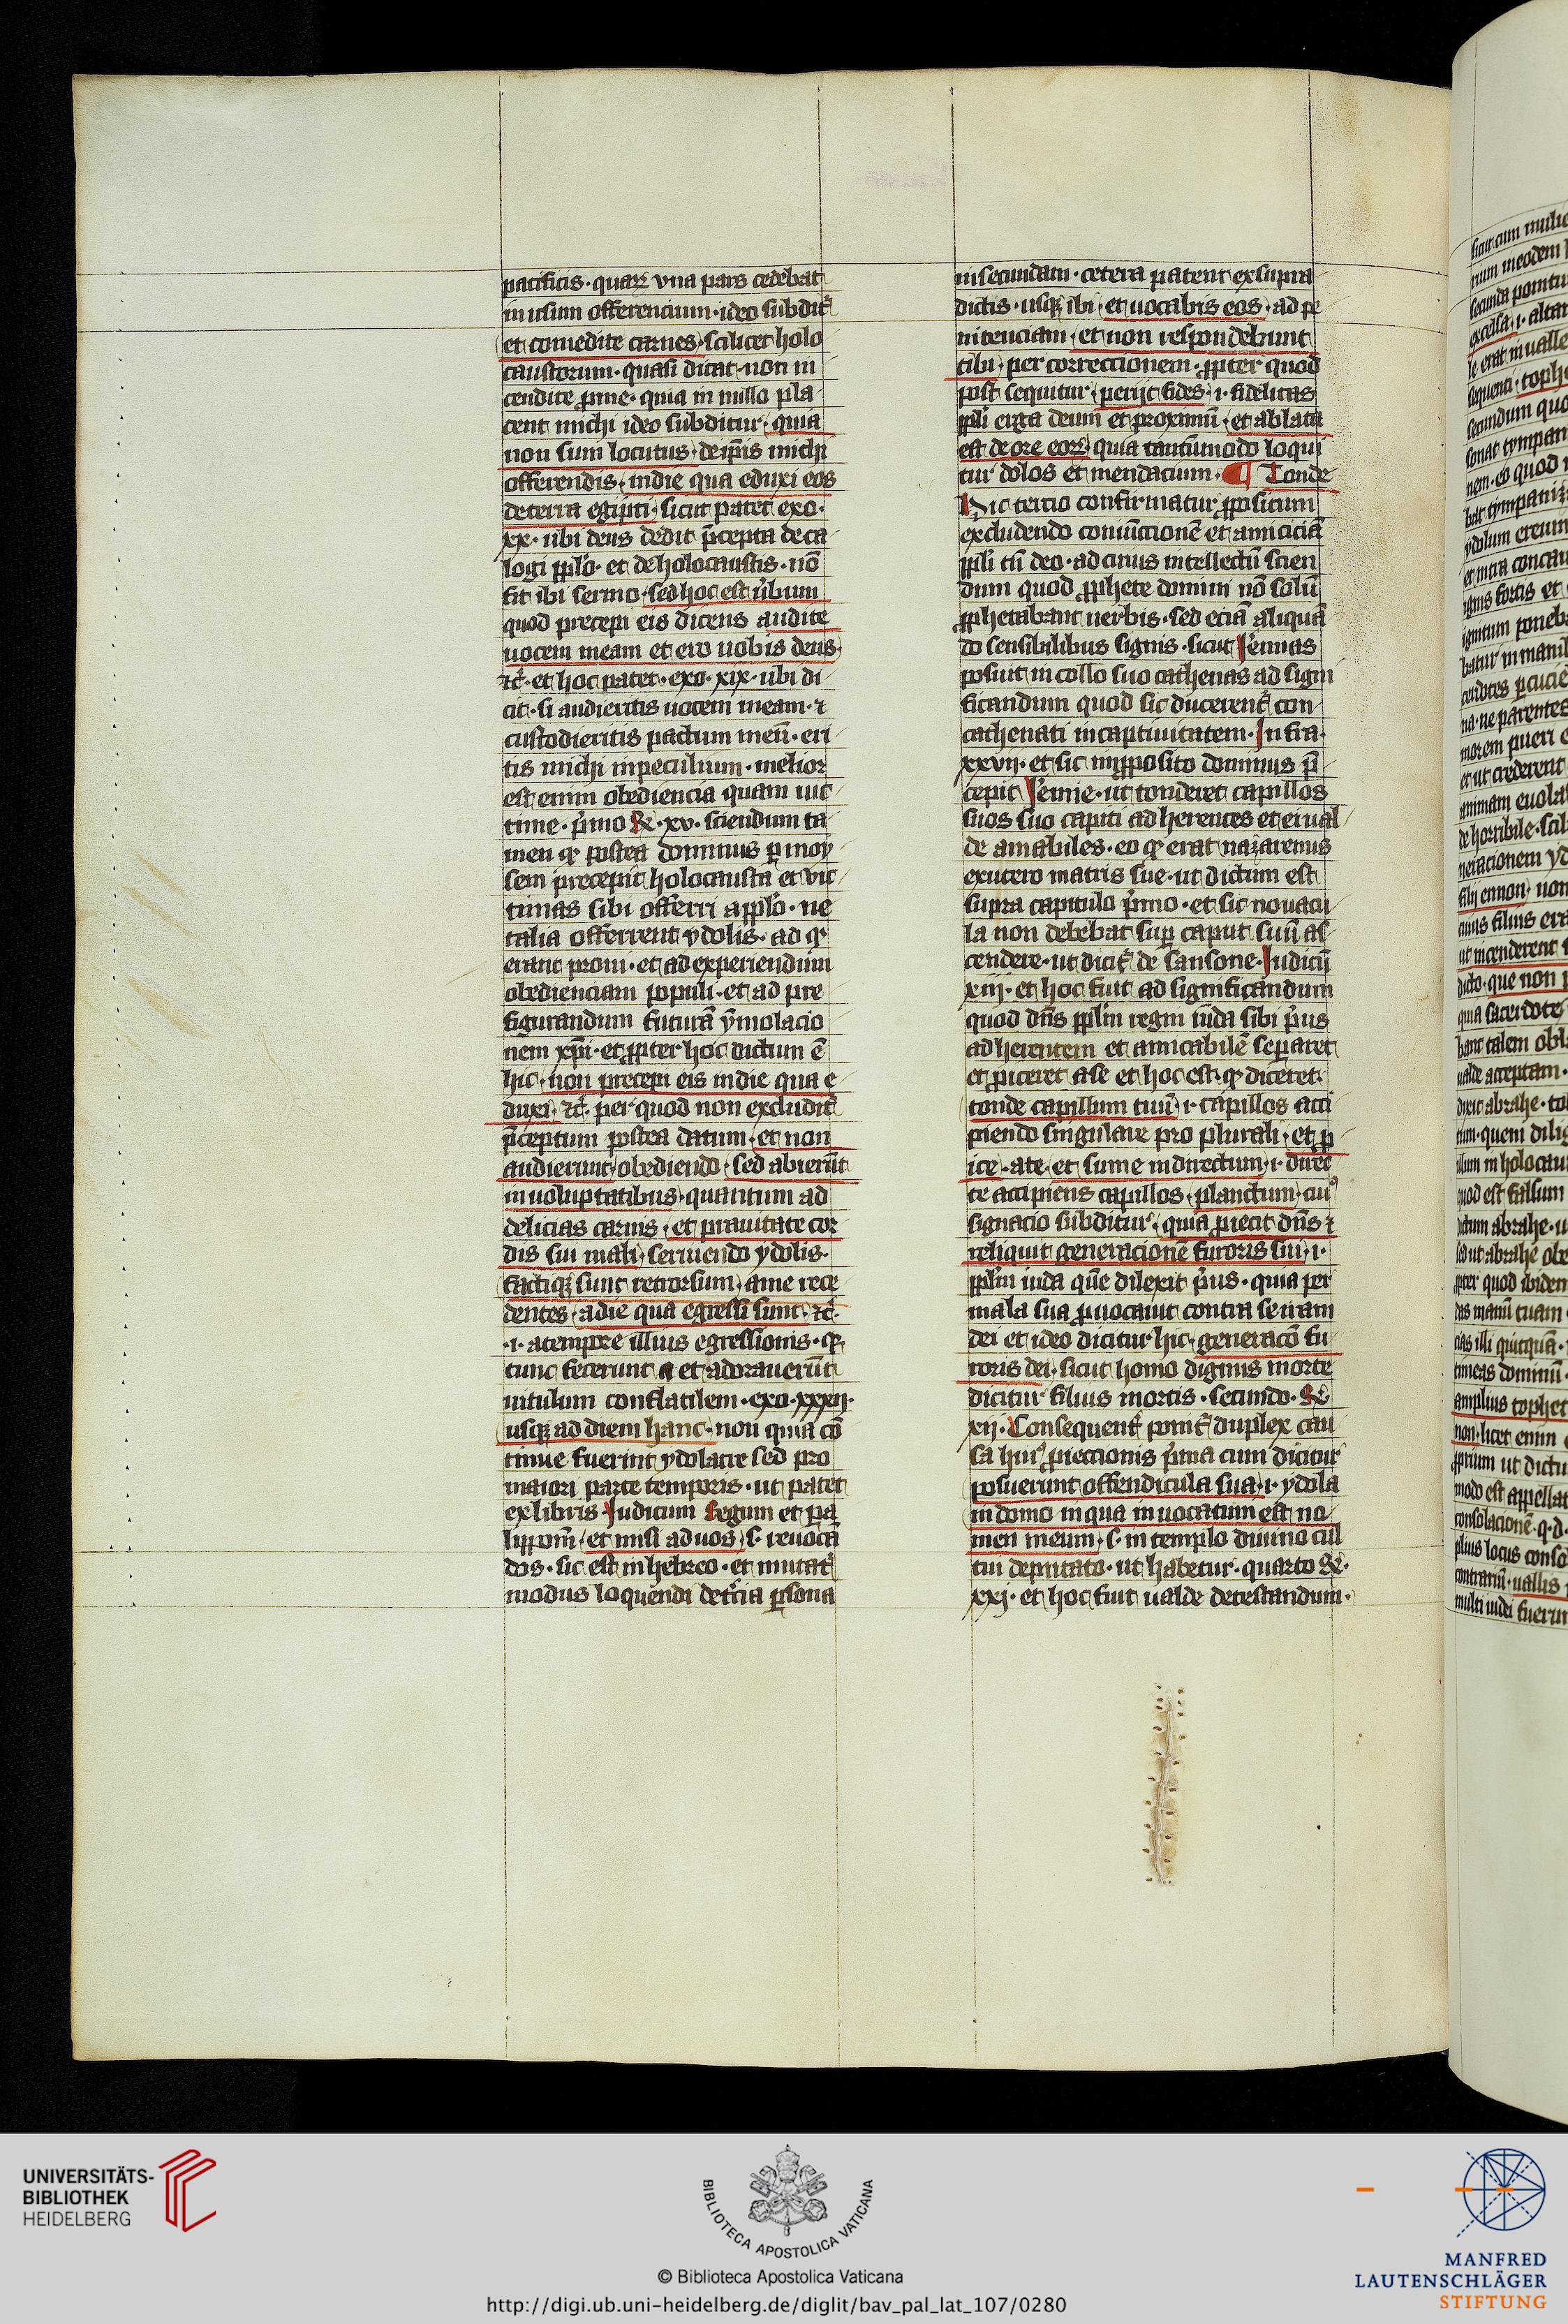 pacificis · quaꝝ vna pars cedebat
in usum offerencium · ideo subditᷣ
et comedite carnes · scilicet holo
caustorum · quasi dicat · non in
cendite ꝓ me · quia in nullo pla
cent michi ideo subditur · quia
non sum locutus · de ip̄is michi
offerendis · in die qua eduxi eos
de terra egipti · sicut patet exo ·
xx · ubi deus dedit p̄cepta deca
logi ppl̓o · et de holocaustis · nō
fit ibi sermo · sed hoc est ůbum
quod precepi eis dicens audite
uocem meam et ero uobis deus
⁊c̓ · et hoc patet · exo · xix · ubi di
cit · si audieritis uocem meam · ⁊
custodieritis pactum meū · eri
tis michi in peculium · melior
est enim obediencia quam uic
time · p̓mo Re · xv · sciendum ta
men ꝙ postea dominus ꝑ moy
sem precepit holocausta et vic
timas sibi offerri a ppl̓o · ne
talia offerrent ydolis · ad ꝙ
erant proni · et ad experiendum
obedienciam populi · et ad pre
figurandum futurā ẏmolacio
nem xp̄i · et ꝓpter hoc dictum ē
hic · non precepi eis in die qua e
duxi · ⁊c̓ · per quod non excluditᷣ
p̄ceptum postea datum · et non
audierunt · obediendo · sed abierūt
in uoluptatibus · quantum ad
delicias carnis · et prauitate cor
dis sui mali · seruiendo ydolis ·
factiqꝫ sunt retrorsum · a me rece
dentes · a die qua egressi sunt · ⁊c̓ ·
· i · a tempore illius egressionis · ꝙ
tunc fecerunt et adorauerūt
uitulum conflatilem · exo · xxxij ·
usqꝫ ad diem hanc · non quia cō
tinue fuerint ydolatre sed pro
maiori parte temporis · ut patet
ex libris Judicum Regum et pa
lippom̄ · et misi ad uos · s · reuocā
dos · sic est in hebreo · et mutatᷣ
modus loquendi de t̓cia ꝑsona
in secundam · cetera patent ex supra
dictis · usqꝫ ibi · et uocabis eos · ad pe
nitenciam · et non respondebunt
tibi · per correccionem · ꝓpter quod
post sequitur · perijt fides · i · fidelitas
ppl̓i erga deum et proximū · et ablata
est de ore eoꝝ · quia tantūmodo loqui
tur dolos et mendacium · ¶ Tonde
Hic tercio confirmatur ꝓpositum
excludendo coniūccionē et amiciciā
ppl̓i cū deo · ad cuius intellectū scien
dum quod ꝓphete domini nō solū
ꝓphetabant uerbis · sed eciā aliquā
do sensibilibus signis · sicut Jeremias
posuit in collo suo cathenas ad signi
ficandum quod sic ducerent̓ con
cathenati in captiuitatem · Infra ·
xxvij · et sic in ꝓposito dominus p̄
cepit Jeremie · ut tonderet capillos
suos suo capiti adherentes et ei ual
de amabiles · eo ꝙ erat nazaremus
ex utero matris sue · ut dictum est
supra capitulo p̓mo · et sic nouacu
la non debebat suꝑ caput suū as
cendere · ut dicitᷣ de Sansone · Judicū
xiij · et hoc fuit ad significandum
quod dn̄s ppl̓m regni iuda sibi p̓us
adherentem et amicabilē separaret
et ꝓiceret a se et hoc est ꝙ diceret ·
tonde capillum tuū · i · capillos acci
piendo singulare pro plurali · et ꝓ
ice · a te · et sume in directum · i · direc
te accipiens capillos · planctum · cuiꝰ
signacio subditur · quia ꝓiecit dn̄s ⁊
reliquit generacionē furoris sui · i ·
ppl̓m iuda quē dilexit p̓us · quia per
mala sua ꝓuocauit contra se iram
dei et ideo dicitur hic · generacō fu
roris dei · sicut homo dignus morte
dicitur filius mortis · secundo · Re
xij · Consequent̓ ponitᷣ duplex cau
sa huiꝰ ꝓieccionis p̓ma cum dicitur
posuerunt offendicula sua · i · ydola
in domo in qua inuocatum est no
men meum · s · in templo diuino cul
tui deputato · ut habetur · quarto Re ·
xxj · et hoc fuit ualde detestandum ·
UNIVERSITÄTS-
BIBLIOTHEK
HEIDELBERG
BIBLIOTECA APOSTOLICA VATICANA
© Biblioteca Apostolica Vaticana
http://digi.ub.uni-heidelberg.de/diglit/bav_pal_lat_107/0280
MANFRED
LAUTENSCHLÄGER
STIFTUNG